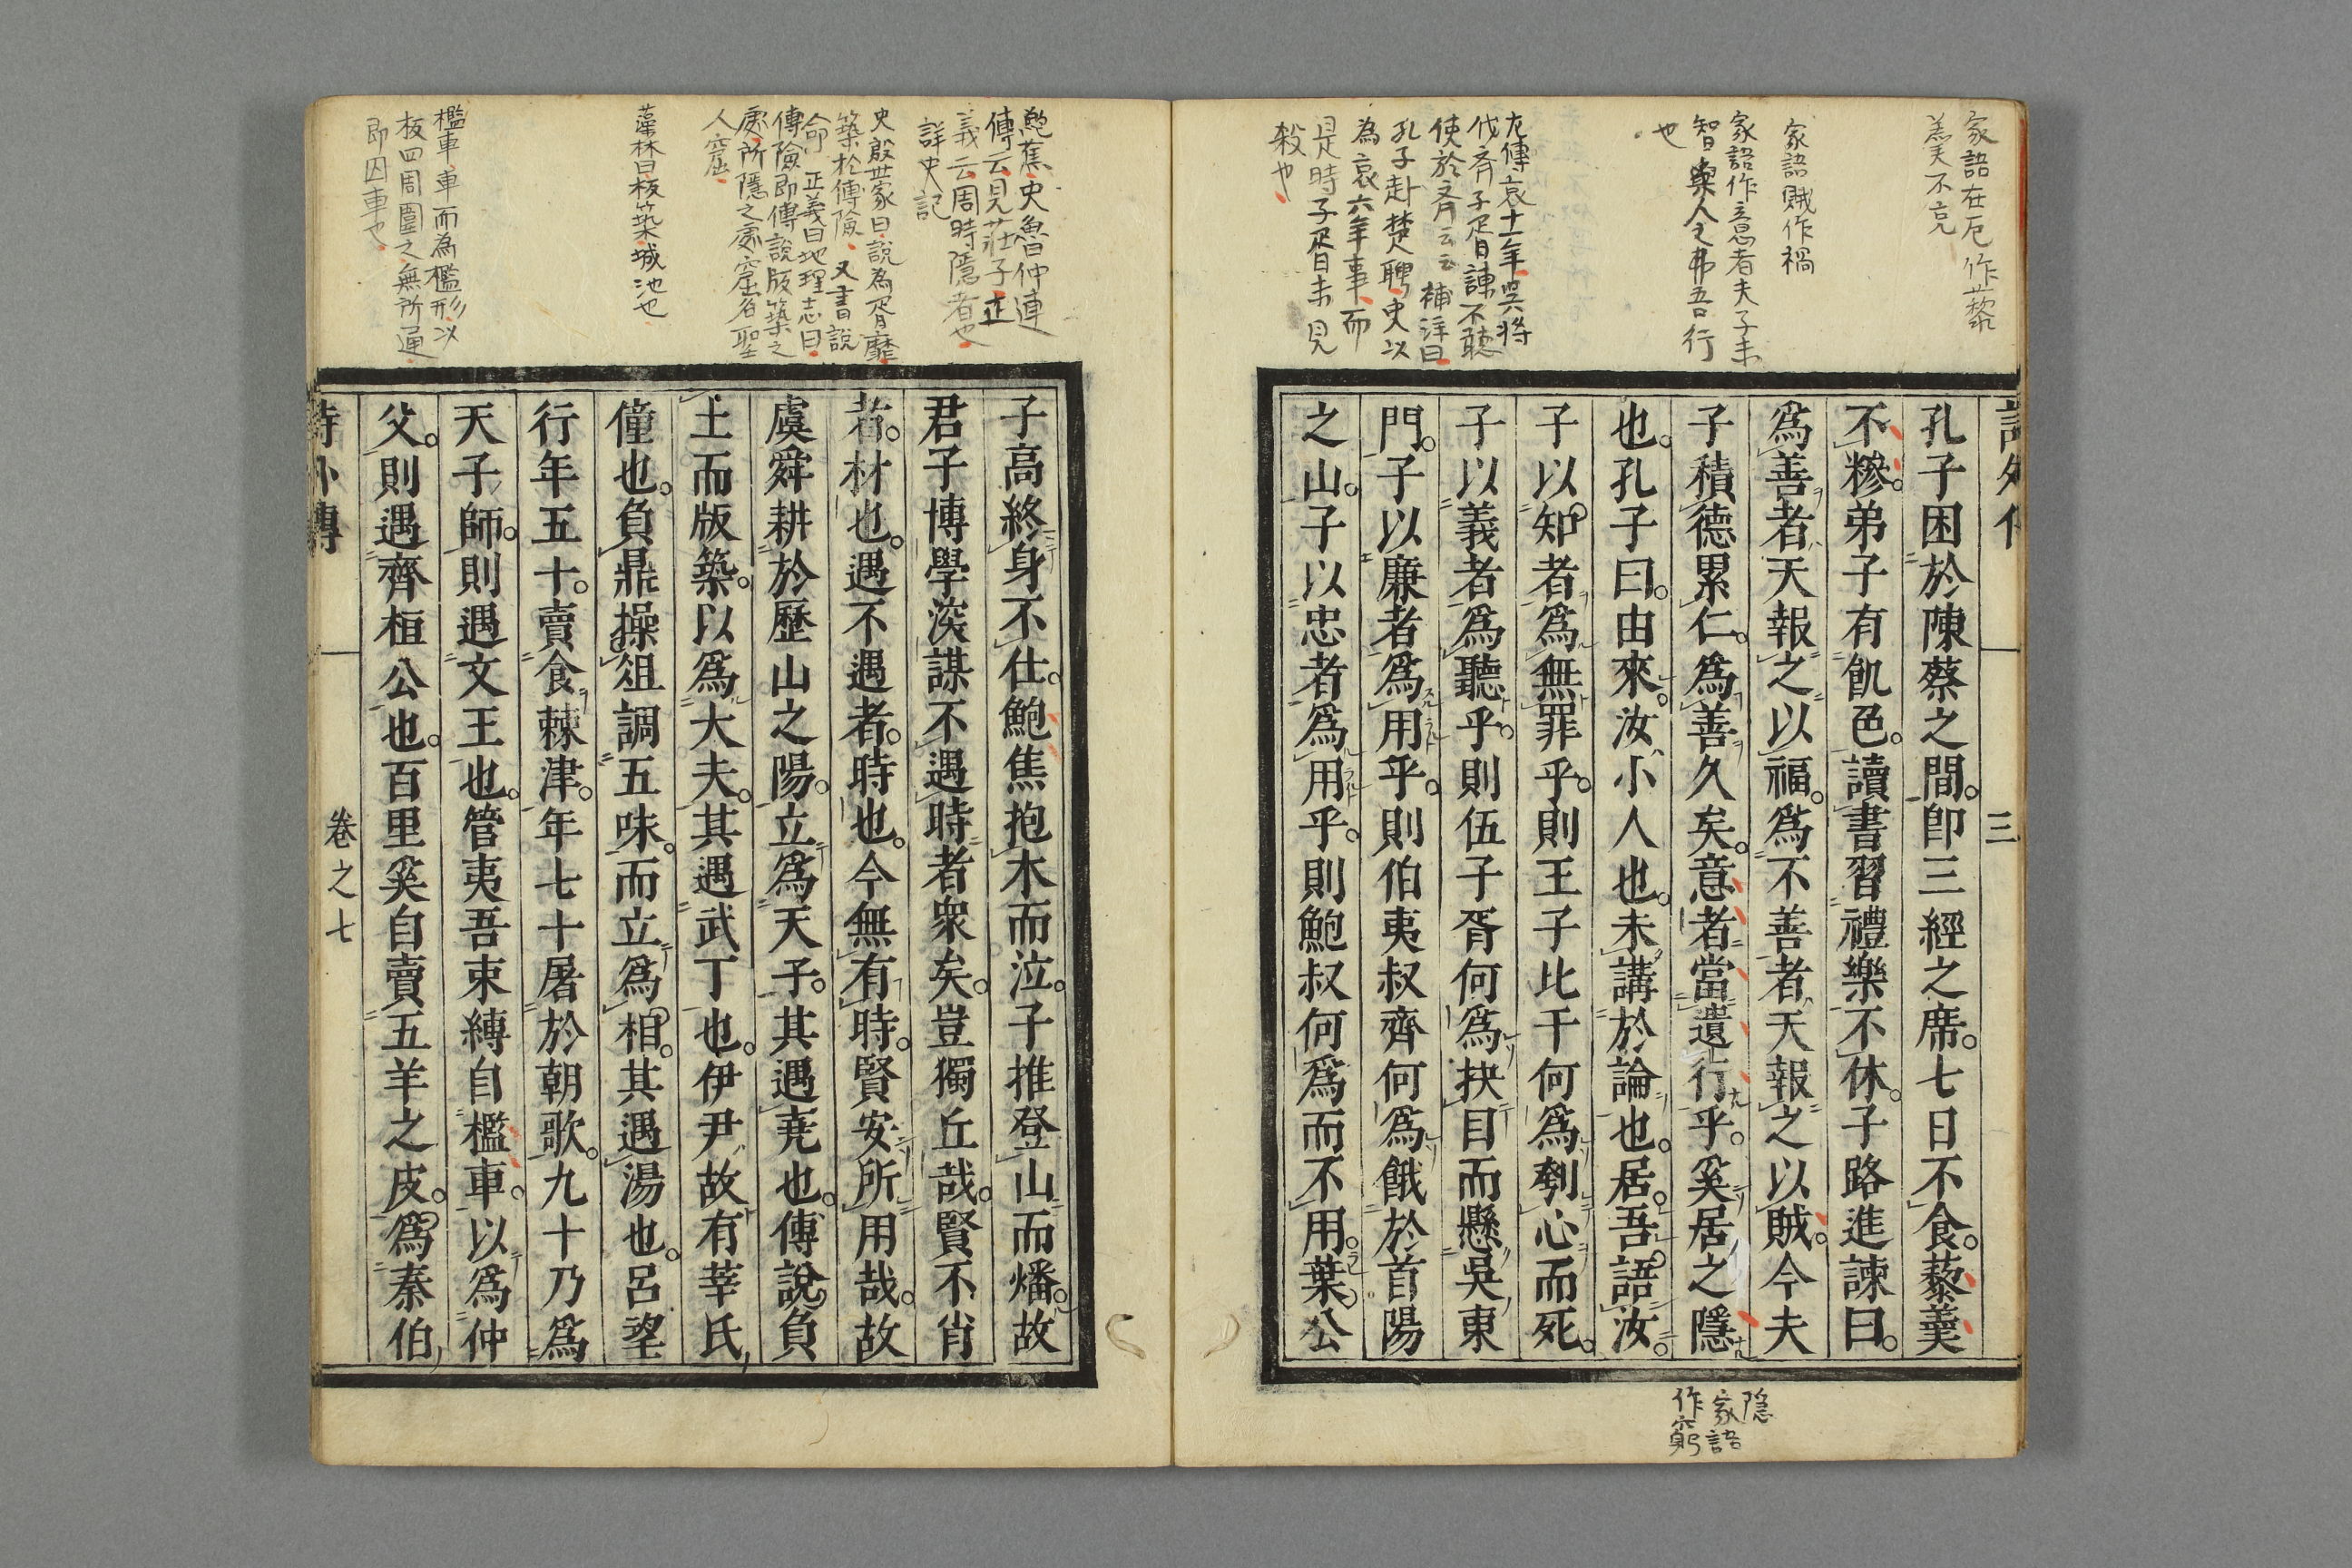 家語在厄作藜
羹不充
家語賊作禍
家語作意者夫子未
智與人之弗吾行
也
左傳哀十一年吳將
伐齊子胥諫不聽
使於齊云云補注曰
孔子赴楚聘史以
為哀六年事而
是時子胥未見
殺也
詩外傳
三
孔子困於陳蔡之間。即三經之席。七日不食。藜羹
不糝。弟子有飢色。讀書習禮樂不休。子路進諫曰。
爲善者天報之以福。爲不善者天報之以賊。今夫
子積德累仁。爲善久矣。意者當遺行乎。奚居之隱
也。孔子曰。由來。汝小人也。未講於論也。居。吾語汝。
子以知者爲無罪乎。則王子比干何爲刳心而死。
子以義者爲聽乎。則伍子胥何爲抉目而懸吳東
門。子以廉者爲用乎。則伯夷叔齊何爲餓於首陽
之山。子以忠者爲用乎。則鮑叔何爲而不用。葉公
隠
家語
作窮
鮑蕉史魯仲連
傳云見莊子正
義云周時隱者也
詳史記
史殷世家曰說為胥靡
築於傅險又書說
命正義曰地理志曰
傅險即傅說版築之
處所隱之處窟名聖
人窟
藻林曰板築城池也
檻車車而為檻形以
板四周圍之無所通
即囚車也
子高終身不仕。鮑焦抱木而泣。子推登山而燔。故
君子博學深謀不遇時者衆矣。豈獨丘哉。賢不肖
者。材也。遇不遇者。時也。今無有時。賢安所用哉。故
虞舜耕於歷山之陽。立爲天子。其遇堯也。傅說負
土而版築。以爲大夫。其遇武丁也。伊尹故有莘氏
僮也。負鼎操俎調五味。而立爲相。其遇湯也。呂望
行年五十。賣食棘津。年七十屠於朝歌。九十乃爲
天子師。則遇文王也。管夷吾束縛自檻車。以爲仲
父。則遇齊桓公也。百里奚自賣五羊之皮。爲秦伯
詩外傳
卷之七